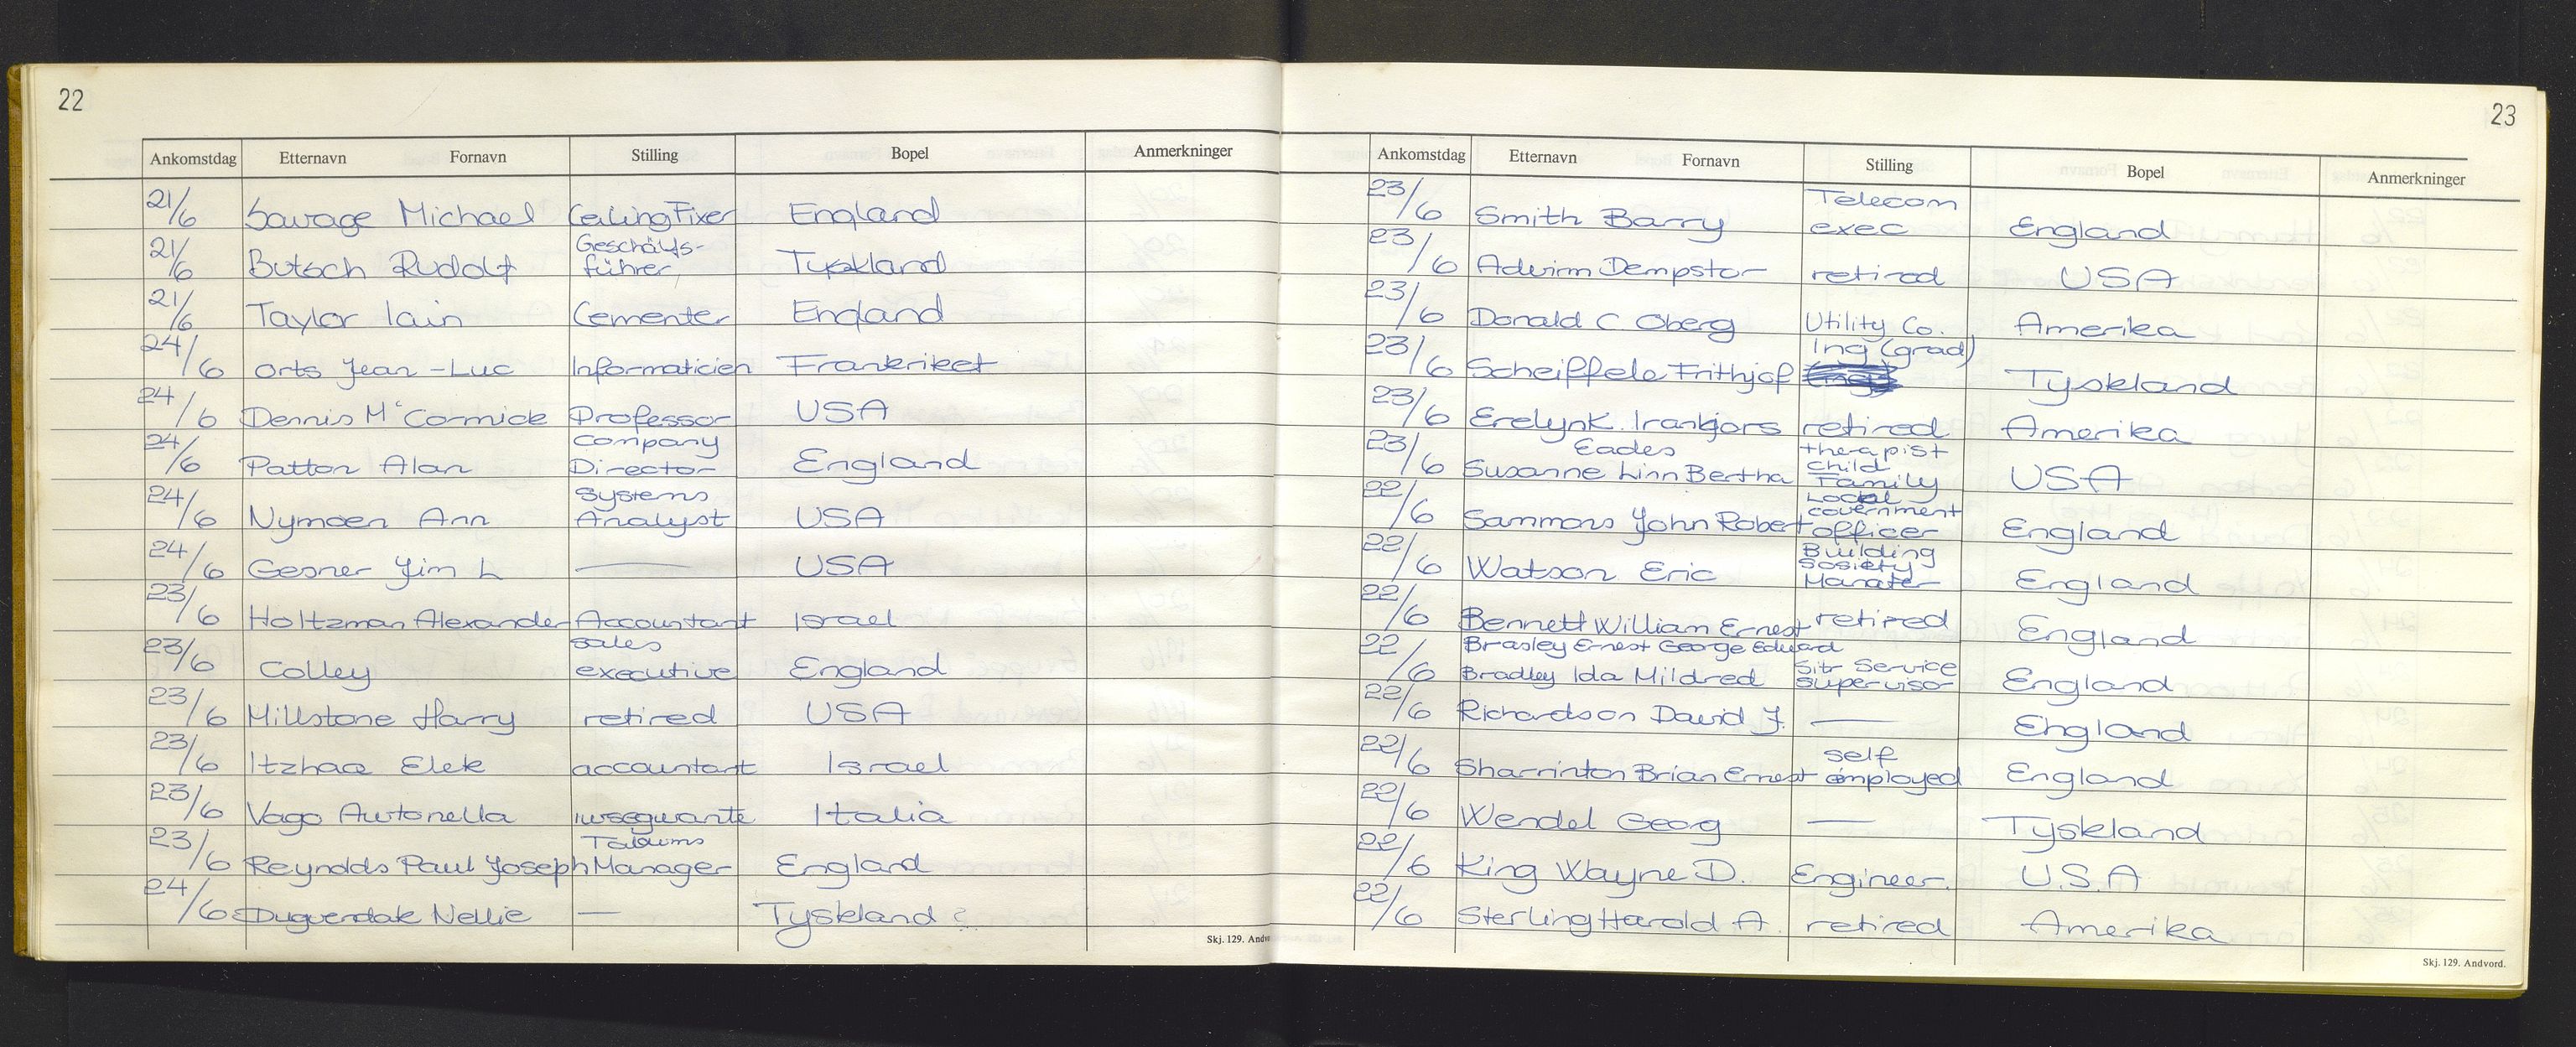 22
Ankomstdag Etternavn Fornavn Stilling Bopel Anmerkninger
21/6 Savage Michael Ceiling Fixer England
21/6 Butsch Rudolf Geschäfts-führer Tyskland
21/6 Taylor Iain Cementer England
24/6 Orts Jean-Luc Informaticien Frankriket
24/6 Dennis McCormick Professor USA
24/6 Patton Alan Company Director England
24/6 Nymoen Ann Systems Analyst USA
24/6 Gesner Jim L — USA
23/6 Holtzman Alexander Accountant Israel
23/6 Colley sales executive England
23/6 Millstone Harry retired USA
23/6 Itzhac Elek accountant Israel
23/6 Vago Antonella insegnante Italia
23/6 Reynolds Paul Joseph Manager England
24/6 Nellie — Tyskland ?
Skj. 129. Andvo
23
Ankomstdag Etternavn Fornavn Stilling Bopel Anmerkninger
23/6 Smith Barry Telecom exec England
23/6 Dempster retired USA
23/6 Donald C Oberg Utility Co. Amerika
23/6 Scheiffele Frithjof Ing (grad) Tyskland
23/6 Erelyn K. retired Amerika
23/6 Eades Susanne Linn Bertha therapist child Family USA
22/6 Sammons John Robert Local government officer England
22/6 Watson Eric Building Sosiety Manater England
22/6 Bennett William Ernest retired England
22/6 Brasley Ernest George Edward
Bradley Ida Mildred Sitr Service supervisor England
22/6 Richardson David J. — England
22/6 Sharrinton Brian Ernest self employed England
22/6 Wendel Georg — Tyskland
22/6 King Wayne D. Engineer. U.S.A
22/6 Sterling Harold A. retired Amerika
Skj. 129. Andvord.